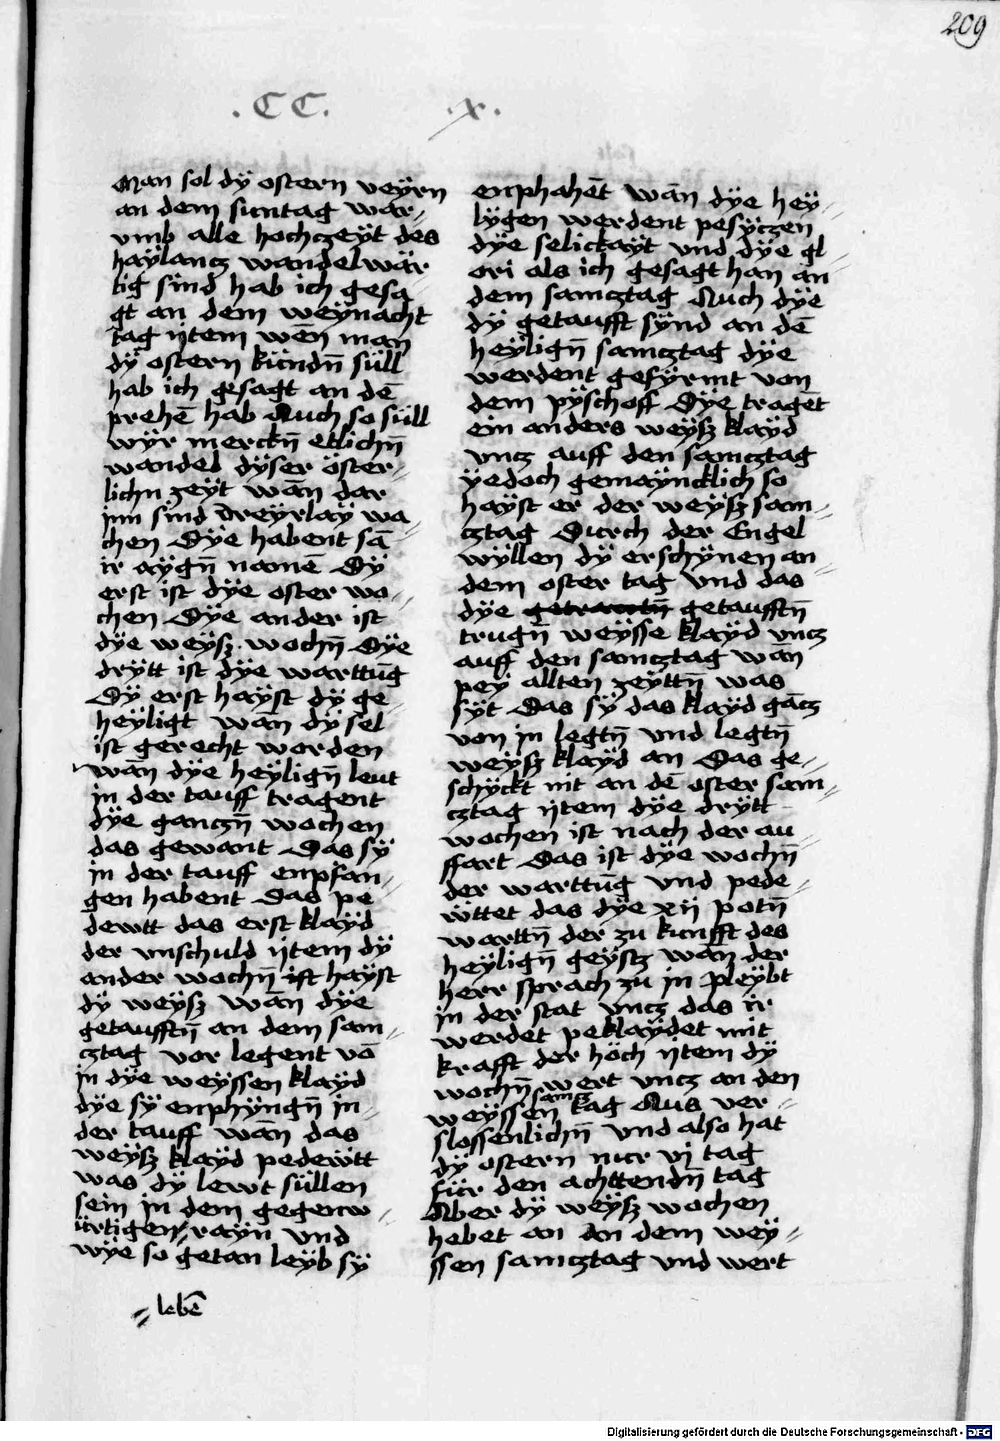 209
.CC. .x.
Man sol dÿ ostern veÿrn
an dem suntag war⸗
vmb alle hochczeÿt des
haÿlancz wandelwär
tig sind hab ich gesa
gt an dem weÿnacht
tag ijtem wen̄ man
dÿ ostern kündn̄ süll
hab ich gesagt an dē
prehē hab Auch so süll
wÿr merckn̄ etlichn̄
wandel dÿser öster⸗
lichn zeÿt wan̄ dar
jnn sind Dreÿrlaÿ wo⸗
chen Dÿe habent sā
ir aÿgn̄ namē Dÿ
erst ist dÿe oster wo⸗
chen Dÿe ander ist
dÿe weÿsz wochn̄ Dÿe
drÿtt ist dÿe warttūg
Dÿ erst haÿst dÿ ge⸗
heÿligt wan dÿ sel
ist gerecht worden
wan̄ dÿe heÿlign̄ leut
in der tauff tragent
dÿe ganczn̄ wochen
das gewant Das sÿ
in der tauff enpfan⸗
gen habent Das pe
dewtt das erst klaÿd
der vnschuld ijtem dÿ
ander wochn̄ ist haÿst
dÿ weÿsz wan̄ dÿe
getaufftn̄ an dem sam⸗
cztag vor legent vō
in dÿe weÿssen klaÿd
dÿe sÿ enphÿngn̄ in⸗
der tauff wan̄ das
weÿsz klaÿd pedewtt
was dÿ lewt süllen
sein in dem gegenw⸗
ürtigen raÿn vnd
wÿe so getan leÿb sÿ
⸗ lebē
enphahēt wan̄ dÿe heÿ⸗
lÿgen werdent pesÿczen
dÿe selictaÿt vnd dÿe gl⸗
ori als ich gesagt han an
dem samcztag Auch dÿe
dÿ getaufft sÿnd an dē
heÿlign̄ samcztag dÿe
werdent gefÿrmt von
dem pÿschoff Dÿe tragēt
ein anders weÿsz klaÿd
vncz auff den samcztag
ÿedoch gemaÿncklich so
haÿst er der weÿsz sam⸗
cztag Durch der Engel
wÿllen dÿ erschÿnen an⸗
dem oster tag vnd das
dÿe getaufftn̄
trugn̄ weÿsse klaÿd vncz
auff den samcztag wan̄
peÿ allten zeÿttn̄ was
sÿt Das sÿ das klaÿd gācz
von in legtn̄ vnd legtn̄
weÿsz klaÿd an Das ge⸗
schÿckt nit an dē oster sam⸗
cztag ijtem dÿe drÿtt
wochen ist nach der au
ffart Das ist dÿe wochn̄
der warttūg vnd pede⸗
wttet das dÿe xij potn̄
warttn̄ der zu kunfft des
heÿlign̄ geÿstz wan̄ der
herr sprach zu in pleÿbt
in der stat vncz das ir
werdet peklaÿdet mit
krafft der höch ijtem dÿ
wochn̄ wert vncz an den
weÿssen samcz tag Aus ver⸗
slossenlichn̄ vnd also hat
dÿ ostern nur vi tag
für den achttendn̄ tag
Aber dÿ weÿsz wochen
hebet an an dem weÿ⸗
ssen samcztag vnd wert
Digitalisierung gefördert durch die Deutsche Forschungsgemeinschaft - DFG